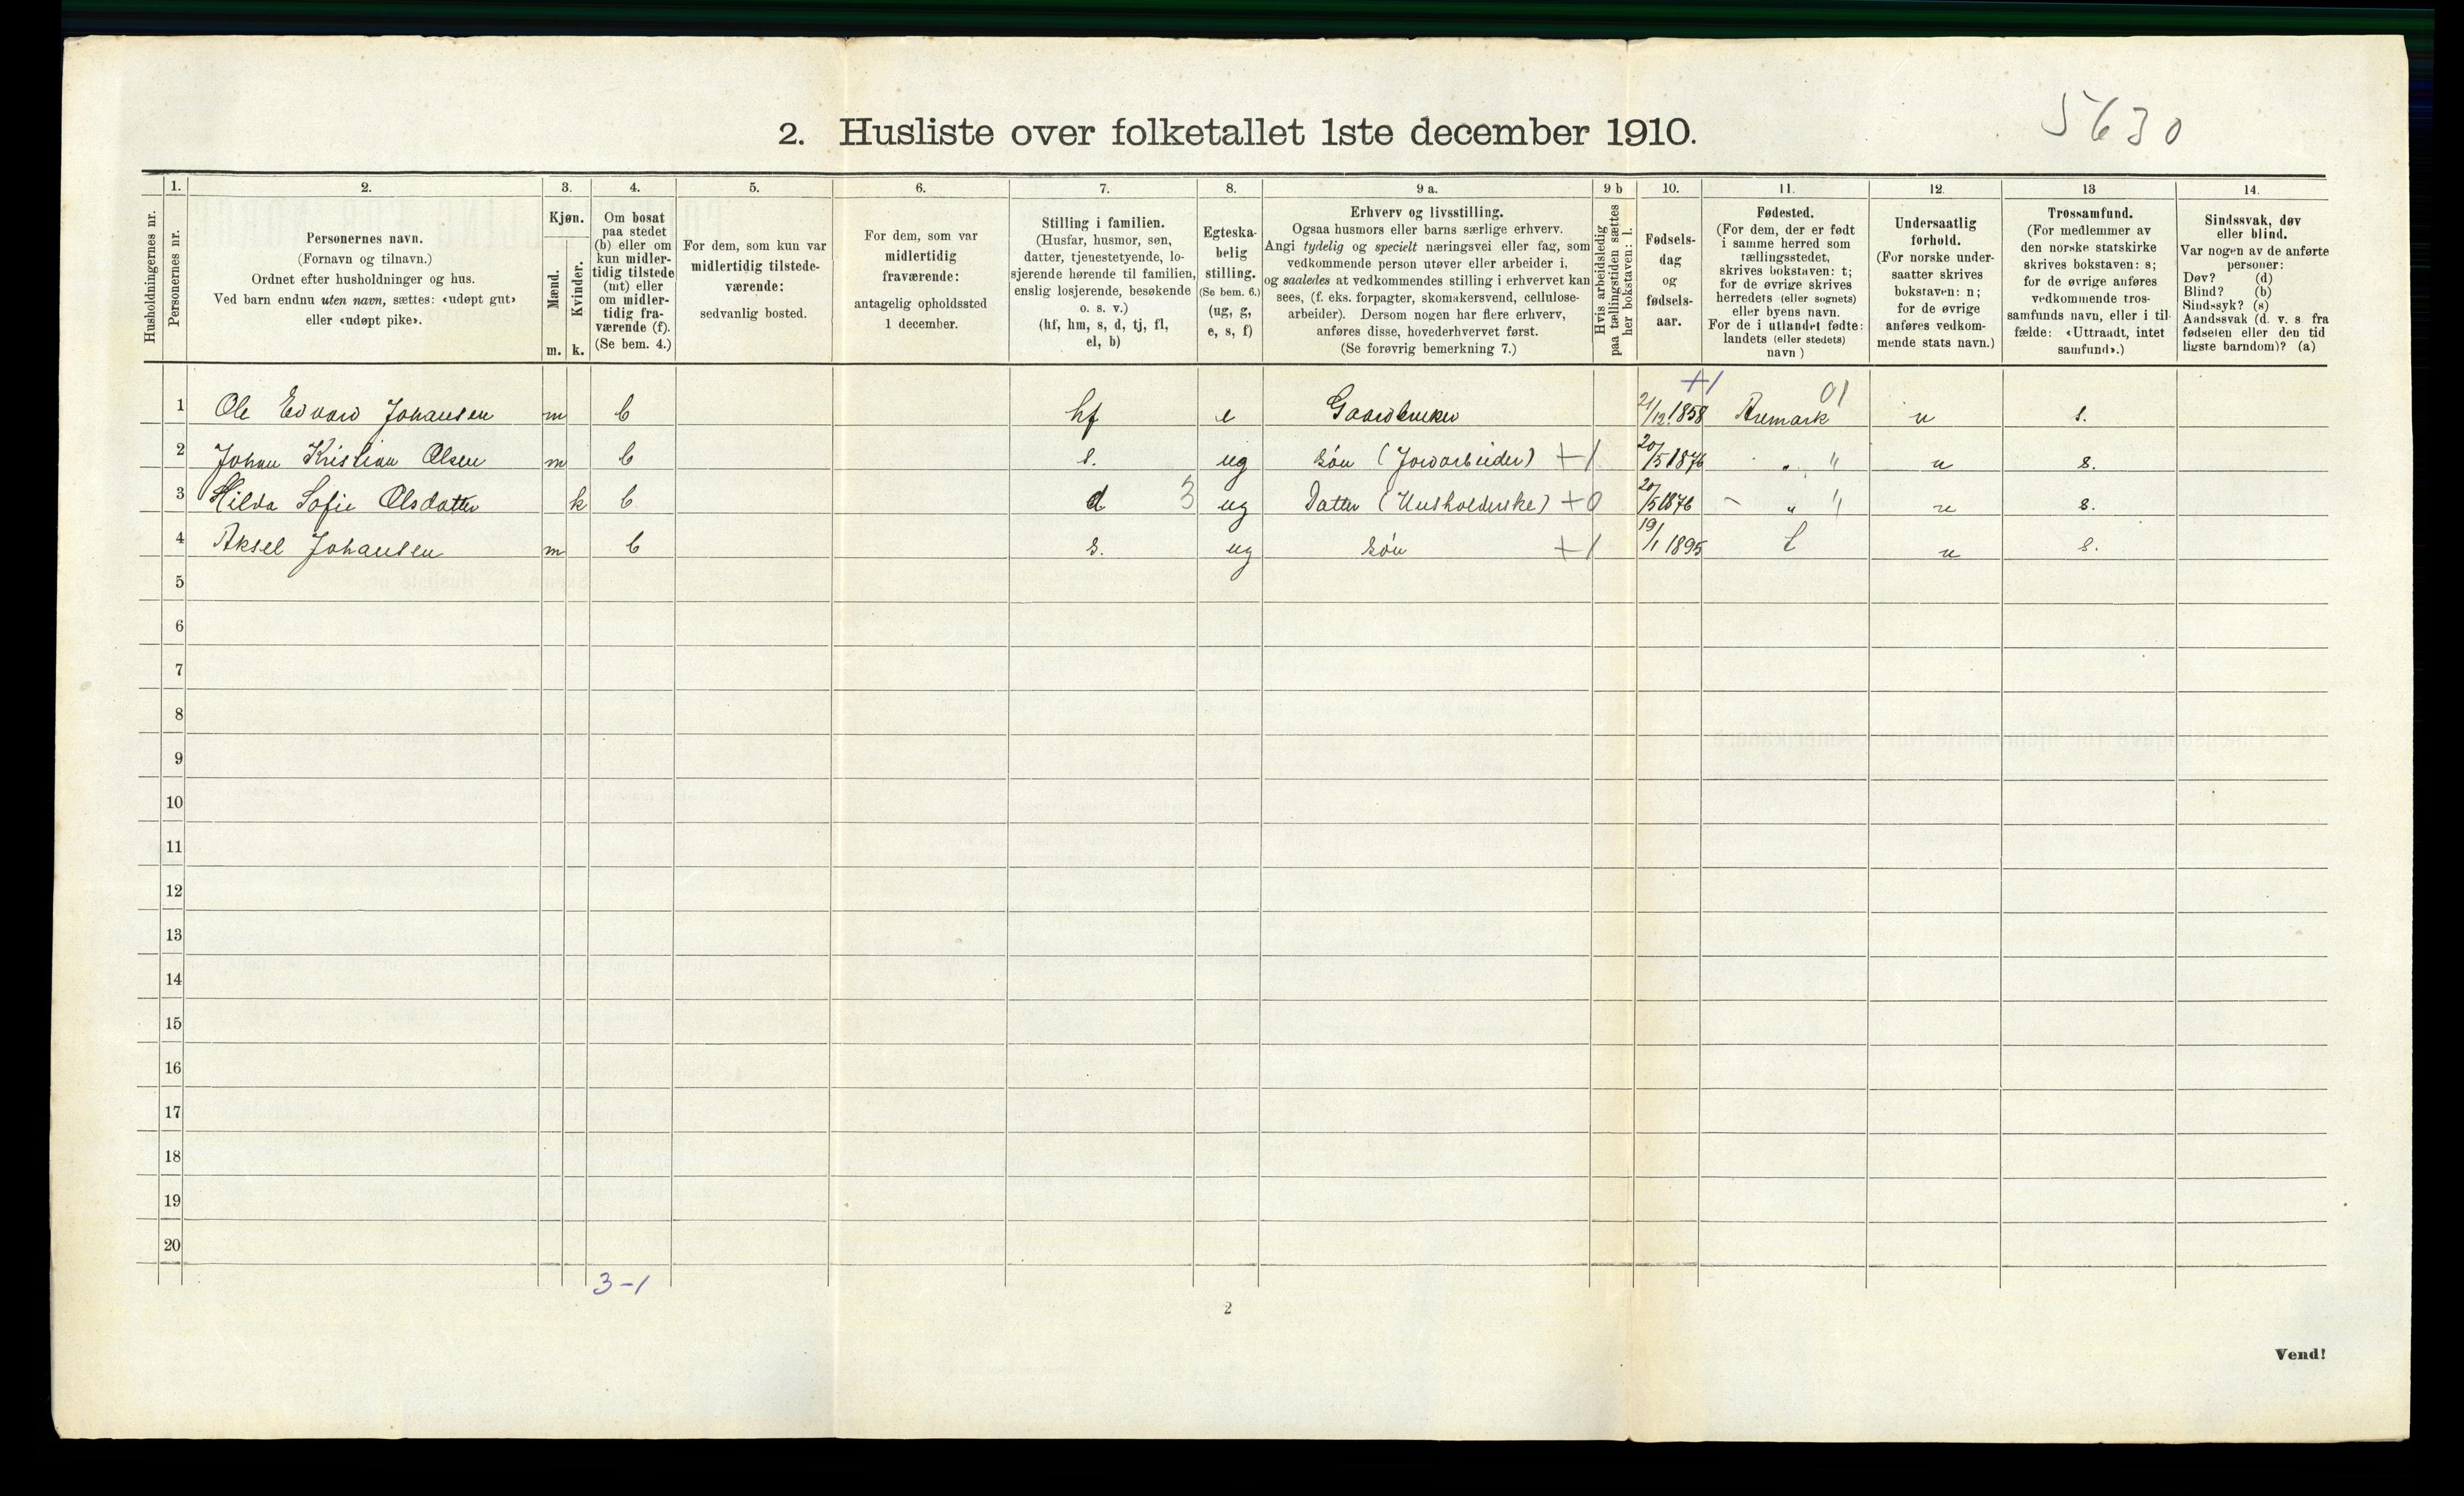 5630
2. Husliste over folketallet 1ste december 1910.
Husholdningernes nr.
1.
Personernes nr.
2.
Personernes navn.
(Fornavn og tilnavn.)
Ordnet efter husholdninger og hus.
Ved barn endnu uten navn, sættes: «udøpt gut»
eller «udøpt pike».
3.
Kjøn.
Mænd.
Kvinder.
m. k.
4.
Om bosat
paa stedet
(b) eller om
kun midler-
tidig tilstede
(mt) eller
om midler-
tidig fra-
værende (f).
(Se bem. 4.)
5.
For dem, som kun var
midlertidig tilstede-
værende:
sedvanlig bosted.
6.
For dem, som var
midlertidig
fraværende:
antagelig opholdssted
1 december.
7.
Stilling i familien.
(Husfar, husmor, søn,
datter, tjenestetyende, lo-
sjerende hørende til familien,
enslig losjerende, besøkende
o. s. v.)
(hf, hm, s, d, tj, fl,
el, b)
8.
Egteska-
belig
stilling.
(Se bem. 6.)
(ug, g,
e, s, f)
9 a.
Erhverv og livsstilling.
Ogsaa husmors eller barns særlige erhverv.
Angi tydelig og specielt næringsvei eller fag, som
vedkommende person utøver eller arbeider i,
og saaledes at vedkommendes stilling i erhvervet kan
sees, (f. eks. forpagter, skomakersvend, cellulose-
arbeider). Dersom nogen har flere erhverv,
anføres disse, hovederhvervet først.
(Se forøvrig bemerkning 7.)
9 b
Hvis arbeidsledig
paa tællingstiden sættes
her bokstaven: l.
10.
Fødsels-
dag
og
fødsels-
aar.
11.
Fødested.
(For dem, der er født
i samme herred som
tællingsstedet,
skrives bokstaven: t;
for de øvrige skrives
herredets (eller sognets)
eller byens navn.
For de i utlandet fødte:
landets (eller stedets)
navn)
12.
Undersaatlig
forhold.
(For norske under-
saatter skrives
bokstaven: n;
for de øvrige
anføres vedkom-
mende stats navn.)
13
Trossamfund.
(For medlemmer av
den norske statskirke
skrives bokstaven: s;
for de øvrige anføres
vedkommende tros-
samfunds navn, eller i til-
fælde: «Uttraadt, intet
samfund».)
14.
Sindssvak, døv
eller blind.
Var nogen av de anførte
personer:
Døv? (d)
Blind? (b)
Sindssyk? (s)
Aandssvak (d. v. s. fra
fødselen eller den tid-
ligste barndom)? (a)
+1 01
1 Ole Edvard Johansen m b hf e Gaardbruker 21/12 1858 Aremark n s.
2 Johan Kristian Olsen m b s. ug søn (Jordarbeider) +1 20/5 1876 " " n s.
3 Hilda Sofie Olsdatter k b d 3 ug Datter (Husholderske) +0 20/5 1876 - " " n s.
4 Aksel Johansen m b s. ug søn +1 19/1 1895 t n s.
5
6
7
8
9
10
11
12
13
14
15
16
17
18
19
20
3-1
2
Vend!